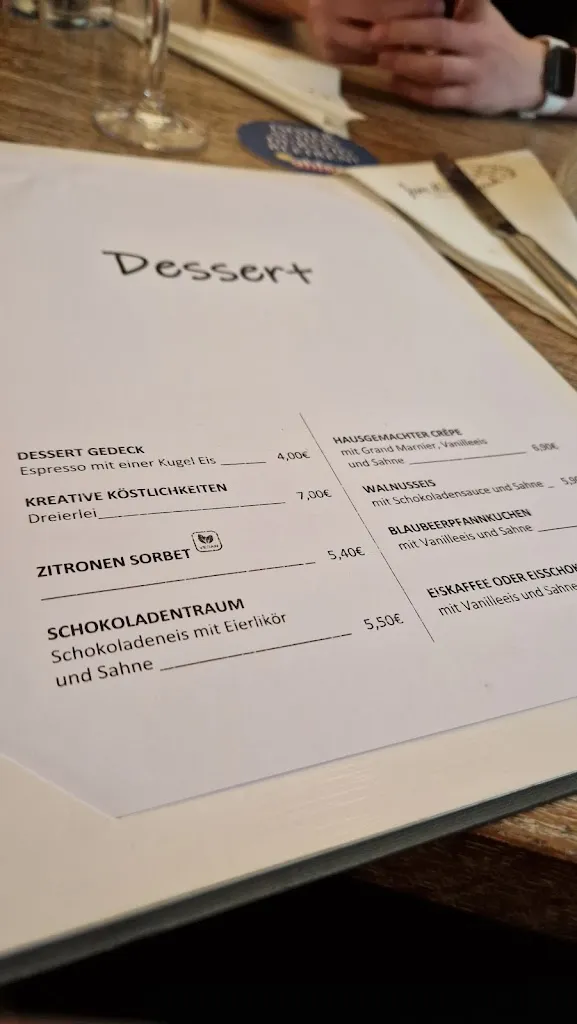 Dessert
DESSERT GEDECK
Espresso mit einer Kugel Eis ______ 4,00€
KREATIVE KÖSTLICHKEITEN
Dreierlei______________________ 7,00€
ZITRONEN SORBET VEGAN
______________________________ 5,40€
SCHOKOLADENTRAUM
Schokoladeneis mit Eierlikör
und Sahne ____________________ 5,50€
HAUSGEMACHTER CRÊPE
mit Grand Marnier, Vanilleeis
und Sahne ________________ 6,90€
WALNUSSEIS
mit Schokoladensauce und Sahne _
BLAUBEERPFANNKUCHEN
mit Vanilleeis und Sahne ______
EISKAFFEE ODER EISSCHOK
mit Vanilleeis und Sahne